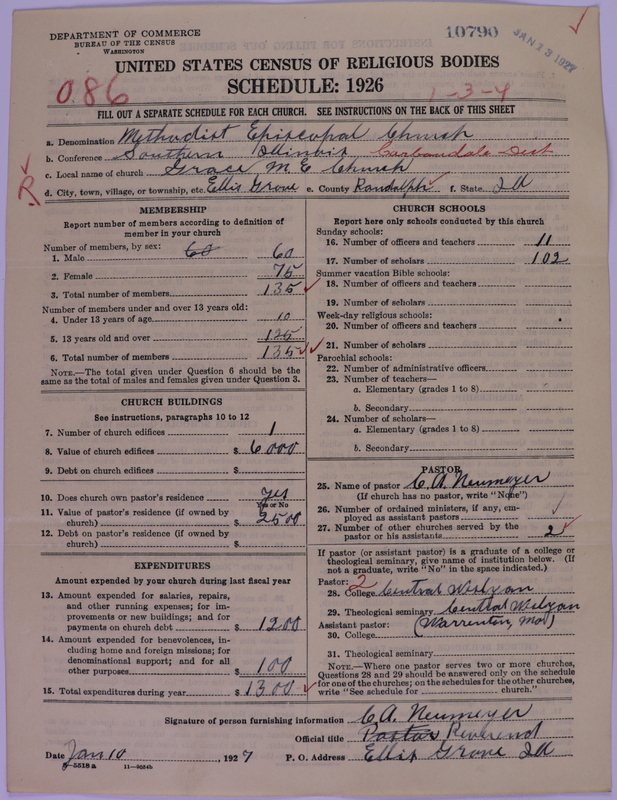 DEPARTMENT OF COMMERCE
BUREAU OF THE CENSUS
WASHINGTON
10790
JAN 13 1927
UNITED STATES CENSUS OF RELIGIOUS BODIES
SCHEDULE: 1926
086
1-3-4
FILL OUT A SEPARATE SCHEDULE FOR EACH CHURCH. SEE INSTRUCTIONS ON THE BACK OF THIS SHEET
a. Denomination Methodist Episcopal Church
b. Conference Southern Illinois Carbondale Dist
c. Local name of church Grace M E Church
R
d. City, town, village, or township, etc. Ellis Grove e. County Randolph f. State Ill
MEMBERSHIP
Report number of members according to definition of
member in your church
Number of members, by sex:
1. Male 60 60
2. Female 75
3. Total number of members 135
Number of members under and over 13 years old:
4. Under 13 years of age 10
5. 13 years old and over 125
6. Total number of members 135
NOTE.—The total given under Question 6 should be
same as the total of males and females given under Question 3.
CHURCH BUILDINGS
See instructions, paragraphs 10 to 12
7. Number of church edifices 1
8. Value of church edifices $ 6000
9. Debt on church edifices $
10. Does church own pastor's residence yes
Yes or No
11. Value of pastor's residence (if owned by
church) $ 2500
12. Debt on pastor's residence (if owned by
church) $
EXPENDITURES
Amount expended by your church during last fiscal year
13. Amount expended for salaries, repairs,
and other running expenses; for im-
provements or new buildings; and for
payments on church debt $ 1200
14. Amount expended for benevolences, in-
cluding home and foreign missions; for
denominational support; and for all
other purposes $ 100
15. Total expenditures during year $ 1300
CHURCH SCHOOLS
Report here only schools conducted by this church
Sunday schools:
16. Number of officers and teachers 11
17. Number of scholars 102
Summer vacation Bible schools:
18. Number of officers and teachers
19. Number of scholars
Week-day religious schools:
20. Number of officers and teachers
21. Number of scholars
Parochial schools:
22. Number of administrative officers
23. Number of teachers—
a. Elementary (grades 1 to 8)
b. Secondary
24. Number of scholars—
a. Elementary (grades 1 to 8)
b. Secondary
PASTOR
25. Name of pastor C. A. Neumeyer
(If church has no pastor, write "None")
26. Number of ordained ministers, if any, em-
ployed as assistant pastors
27. Number of other churches served by the
pastor or his assistants 2
If pastor (or assistant pastor) is a graduate of a college or
theological seminary, give name of institution below. (If
not a graduate, write "No" in the space indicated.)
Pastor: 2
28. College Central Weslyan
29. Theological seminary Central Weslyan
Assistant pastor: (Warrenton, Mo)
30. College
31. Theological seminary
NOTE.—Where one pastor serves two or more churches,
Questions 28 and 29 should be answered only on the schedule
for one of the churches; on the schedules for the other churches,
write "See schedule for church."
Signature of person furnishing information C. A. Neumeyer
Official title Pastor Reverend
Date Jan 10, 1927 P. O. Address Ellis Grove Ill
8-5518 a 11-9684b